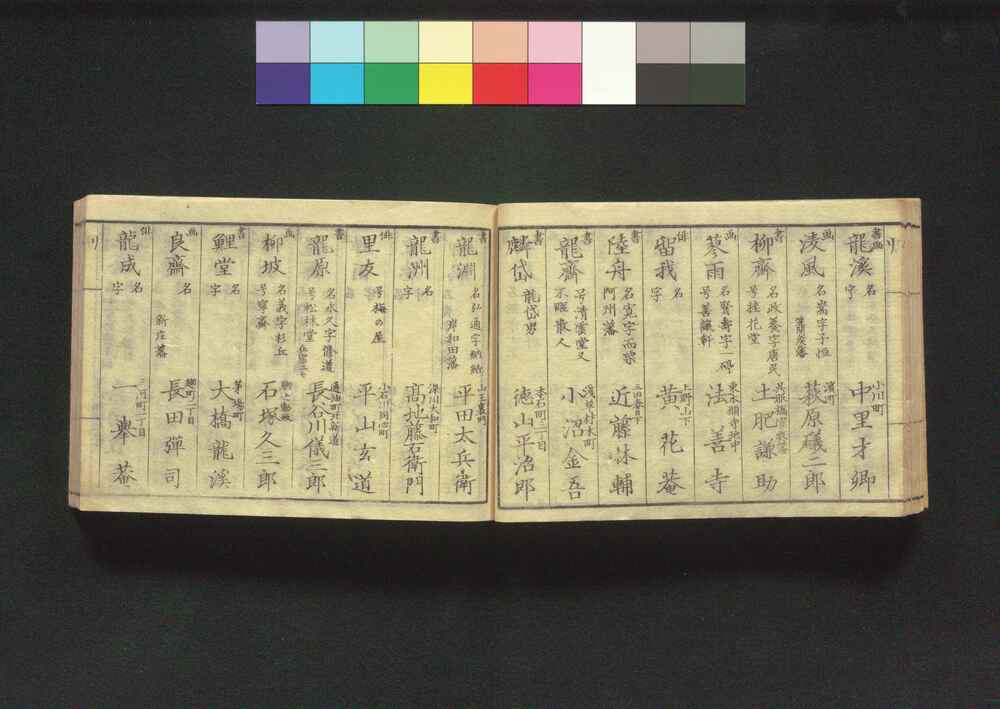 リ
書画 龍溪 名 字 小川町 中里才卿
凌風 名嵩字子恒 濱町 萩原礒二郎
書 柳齋 名政養字唐民 号桂花堂 呉服橋 土肥謙助
画 蓼雨 名賢壽字一碍 号善讓軒 東本願寺地中 法善寺
俳 留我 名 字 上野山下 黄花菴
書 陸舟 名寛字而栗 阿州藩 近藤林輔
書 龍齋 号清雲堂又 不醒散人 浅草材木町 小沼金吾
書 龍岱男 本石町二丁目 徳山平治郎
書 龍淵 名弘通字納納 岸和田藩 山王裏町 平田太兵衛
書 龍洲 名 字 深川大和町 高地藤右衛門
俳 里友 号梅の屋 小石川同心町 平山玄道
書 龍原 名永久字脩道 号松抹堂 通油町新道 長谷川儀三郎
画 柳坡 名義字杉丘 号寧齋 石塚久三郎
書 鯉堂 名 字 茅場町 大橋龍溪
画 良齋 名 新庄藩 麹町二丁目 長田彈司
俳 龍成 名 字 三河町二丁目 一舉菴
リ